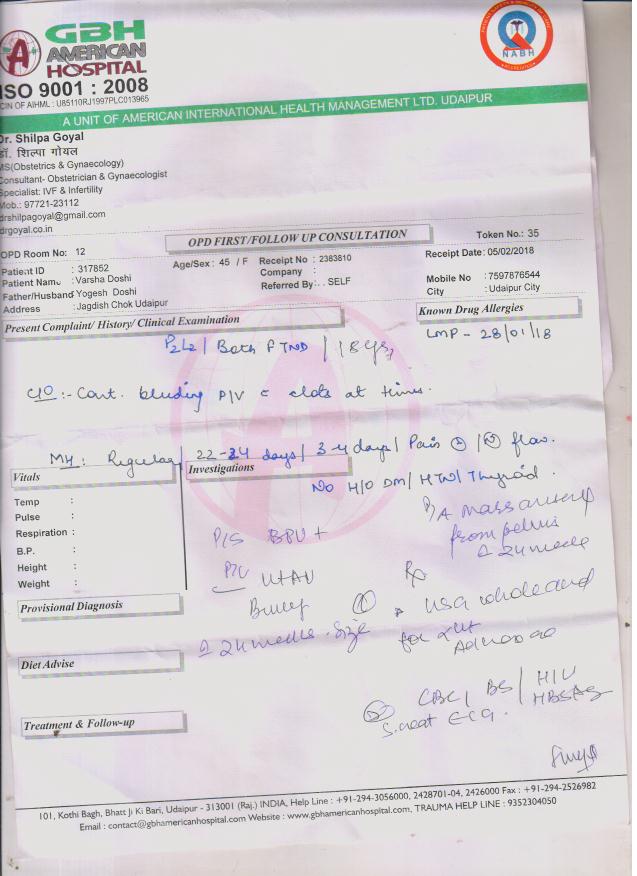 GBH
AMERICAN
HOSPITAL
ISO 9001 : 2008
CIN OF AIHML : U85110RJ1997PLC013965
NABH
A UNIT OF AMERICAN INTERNATIONAL HEALTH MANAGEMENT LTD. UDAIPUR
Dr. Shilpa Goyal
डॉ. शिल्पा गोयल
MS(Obstetrics & Gynaecology)
Consultant- Obstetrician & Gynaecologist
Specialist: IVF & Infertility
Mob.: 97721-23112
drshilpagoyal@gmail.com
drgoyal.co.in
OPD FIRST/FOLLOW UP CONSULTATION
Token No.: 35
OPD Room No: 12
Receipt Date: 05/02/2018
Patient ID : 317852
Age/Sex : 45 / F
Receipt No : 2383810
Patient Name : Varsha Doshi
Company :
Mobile No : 7597876544
Father/Husband Yogesh Doshi
Referred By: . SELF
City : Udaipur City
Address : Jagdish Chok Udaipur
Present Complaint/ History/ Clinical Examination
Known Drug Allergies
P2L2 / Both FTND / 18 yrs
LMP - 28/01/18
C/O :- Cont. bleeding P/V c clots at times.
MH : Regular / 22-24 days / 3-4 days / Pain / flow.
No H/O DM / HTN / Thyroid.
Vitals
Investigations
Temp :
Pulse :
Respiration :
B.P. :
Height :
Weight :
P/A Mass
from pelvis
24 weeks
P/S
P/V UtAV
Rx
24 weeks size
USG whole abd
for
Provisional Diagnosis
Diet Advise
CBC / BS / HIV
HBsAg
S. creat ECG.
Treatment & Follow-up
101, Kothi Bagh, Bhatt Ji Ki Bari, Udaipur - 313001 (Raj.) INDIA, Help Line : +91-294-3056000, 2428701-04, 2426000 Fax : +91-294-2526982
Email : contact@gbhamericanhospital.com Website : www.gbhamericanhospital.com, TRAUMA HELP LINE : 9352304050